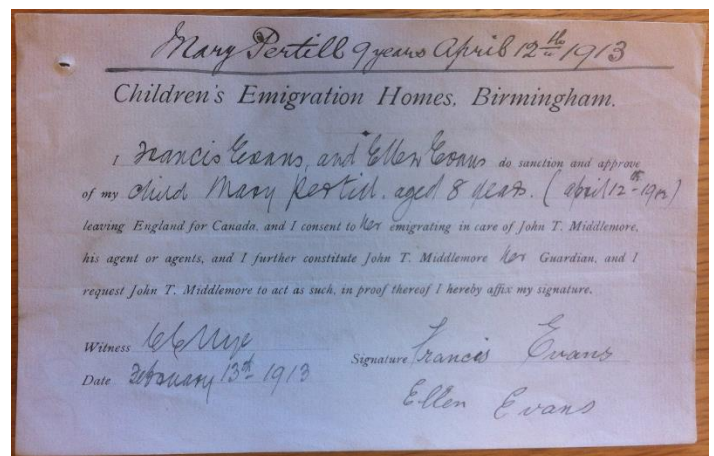 Mary Pertill 9 years April 12th 1913
Children's Emigration Homes, Birmingham.
I Francis Evans, and Ellen Evans do sanction and approve
of my child Mary Pertill. aged 8 years. (april 12th 1912)
leaving England for Canada, and I consent to her emigrating in care of John T. Middlemore,
his agent or agents, and I further constitute John T. Middlemore her Guardian, and I
request John T. Middlemore to act as such, in proof thereof I hereby affix my signature.
Witness
Signature Francis Evans
Date February 13th 1913
Ellen Evans